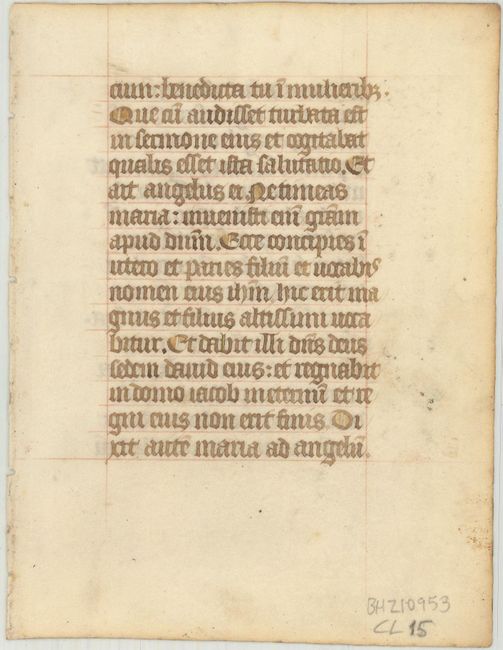 cum: benedicta tu ī mulieribꝫ.
Que cū audisset turbata est
in sermone eius et cogitabat
qualis esset ista salutatio. Et
ait angelus ei Ne timeas
maria: invenisti enī grām
apud dnm̄. Ecce concipies ī
utero et paries filiū et vocabis
nomen eius ihm̄ hic erit ma
gnus et filius altissimi voca
bitur. Et dabit illi dn̄s deus
sedem david eius: et regnabit
in domo iacob ineternū et re
gni eius non erit finis. Di
xit autē maria ad angelū.
BHZ10953
CL 15